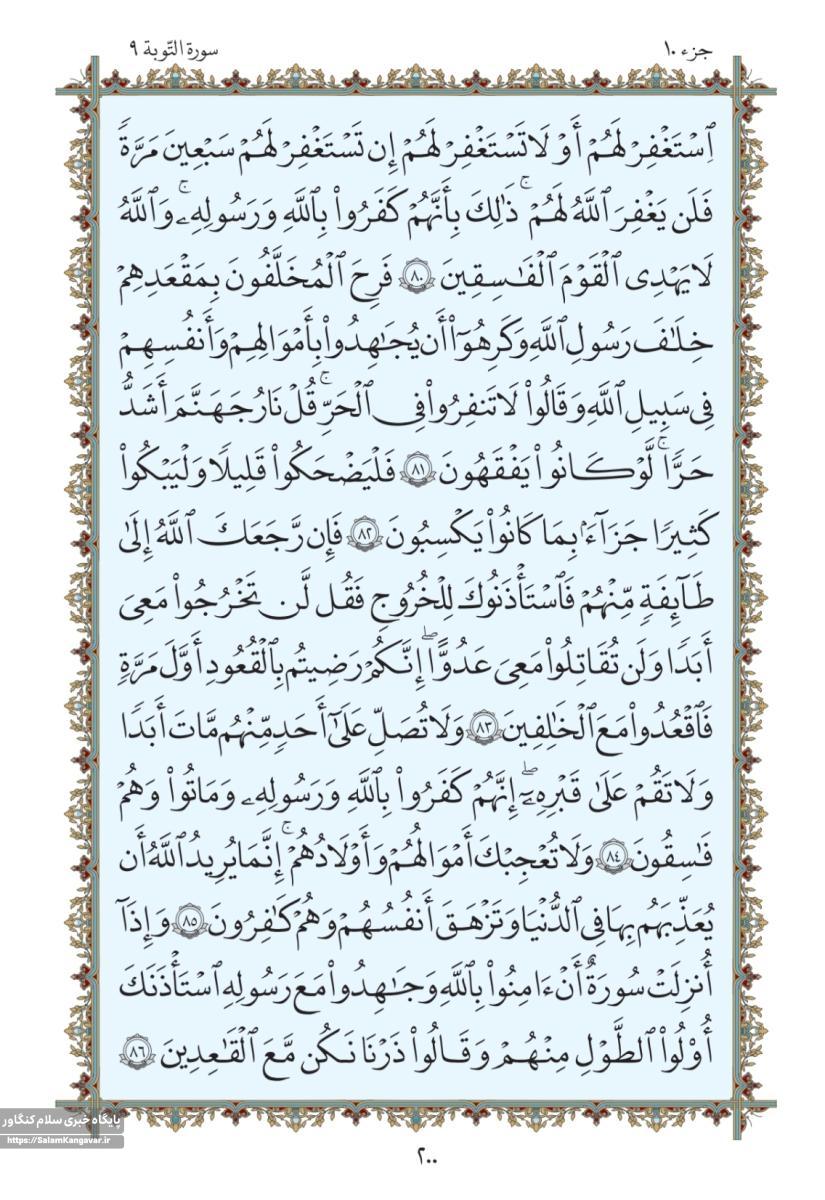 جزء ١٠
سورة التّوبة ٩
ٱسۡتَغۡفِرۡ لَهُمۡ أَوۡ لَا تَسۡتَغۡفِرۡ لَهُمۡ إِن تَسۡتَغۡفِرۡ لَهُمۡ سَبۡعِينَ مَرَّةٗ
فَلَن يَغۡفِرَ ٱللَّهُ لَهُمۡۚ ذَٰلِكَ بِأَنَّهُمۡ كَفَرُواْ بِٱللَّهِ وَرَسُولِهِۦۚ وَٱللَّهُ
لَا يَهۡدِي ٱلۡقَوۡمَ ٱلۡفَٰسِقِينَ ٨٠ فَرِحَ ٱلۡمُخَلَّفُونَ بِمَقۡعَدِهِمۡ
خِلَٰفَ رَسُولِ ٱللَّهِ وَكَرِهُوٓاْ أَن يُجَٰهِدُواْ بِأَمۡوَٰلِهِمۡ وَأَنفُسِهِمۡ
فِي سَبِيلِ ٱللَّهِ وَقَالُواْ لَا تَنفِرُواْ فِي ٱلۡحَرِّۚ قُلۡ نَارُ جَهَنَّمَ أَشَدُّ
حَرّٗاۚ لَّوۡ كَانُواْ يَفۡقَهُونَ ٨١ فَلۡيَضۡحَكُواْ قَلِيلٗا وَلۡيَبۡكُواْ
كَثِيرٗا جَزَآءَۢ بِمَا كَانُواْ يَكۡسِبُونَ ٨٢ فَإِن رَّجَعَكَ ٱللَّهُ إِلَىٰ
طَآئِفَةٖ مِّنۡهُمۡ فَٱسۡتَـٔۡذَنُوكَ لِلۡخُرُوجِ فَقُل لَّن تَخۡرُجُواْ مَعِيَ
أَبَدٗا وَلَن تُقَٰتِلُواْ مَعِيَ عَدُوًّاۖ إِنَّكُمۡ رَضِيتُم بِٱلۡقُعُودِ أَوَّلَ مَرَّةٖ
فَٱقۡعُدُواْ مَعَ ٱلۡخَٰلِفِينَ ٨٣ وَلَا تُصَلِّ عَلَىٰٓ أَحَدٖ مِّنۡهُم مَّاتَ أَبَدٗا
وَلَا تَقُمۡ عَلَىٰ قَبۡرِهِۦٓۖ إِنَّهُمۡ كَفَرُواْ بِٱللَّهِ وَرَسُولِهِۦ وَمَاتُواْ وَهُمۡ
فَٰسِقُونَ ٨٤ وَلَا تُعۡجِبۡكَ أَمۡوَٰلُهُمۡ وَأَوۡلَٰدُهُمۡۚ إِنَّمَا يُرِيدُ ٱللَّهُ أَن
يُعَذِّبَهُم بِهَا فِي ٱلدُّنۡيَا وَتَزۡهَقَ أَنفُسُهُمۡ وَهُمۡ كَٰفِرُونَ ٨٥ وَإِذَآ
أُنزِلَتۡ سُورَةٌ أَنۡ ءَامِنُواْ بِٱللَّهِ وَجَٰهِدُواْ مَعَ رَسُولِهِ ٱسۡتَـٔۡذَنَكَ
أُوْلُواْ ٱلطَّوۡلِ مِنۡهُمۡ وَقَالُواْ ذَرۡنَا نَكُن مَّعَ ٱلۡقَٰعِدِينَ ٨٦
پایگاه خبری سلام کنگاور
https://SalamKangavar.ir
٢٠٠